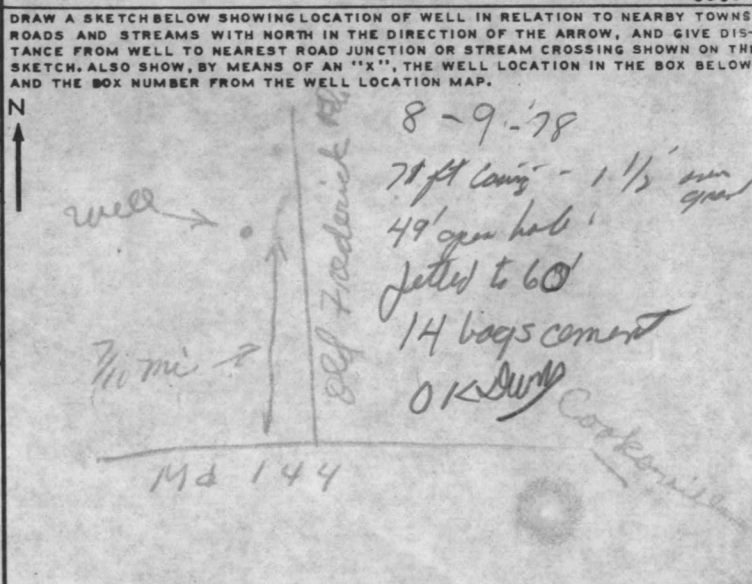 DRAW A SKETCH BELOW SHOWING LOCATION OF WELL IN RELATION TO NEARBY TOWNS
ROADS AND STREAMS WITH NORTH IN THE DIRECTION OF THE ARROW, AND GIVE DIS-
TANCE FROM WELL TO NEAREST ROAD JUNCTION OR STREAM CROSSING SHOWN ON THE
SKETCH. ALSO SHOW, BY MEANS OF AN "X", THE WELL LOCATION IN THE BOX BELOW
AND THE BOX NUMBER FROM THE WELL LOCATION MAP.
N
8-9-78
ft casing - 1 1/2'
49' open hole
Jetted to 60'
14 bags cement
OK
well
Old Frederick Rd
7/10 mi
Md 144
Cooksville